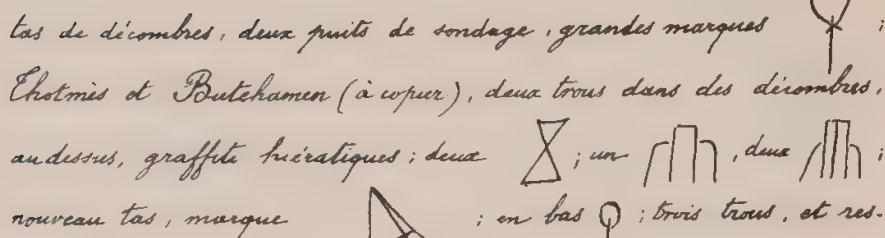 tas de décombres, deux puits de sondage, grandes marques ;
Thotmès et Butehamen (à copier), deux trous dans des décombres,
au dessus, graffiti hiératiques ; deux ; un , deux ;
nouveau tas, marque ; en bas ; trois trous, et res-